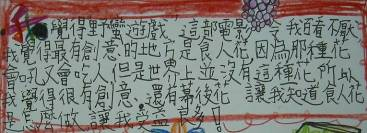 我覺得野蠻遊戲這部電影,令我百看不厭
我覺得最有創意的地方是食人花因為那種花
會吼又會吃人但是世界上並沒有這種花所以
我覺得很有創意,還有幕後花 讓我知道食人花
怎麼做讓我受益 多!